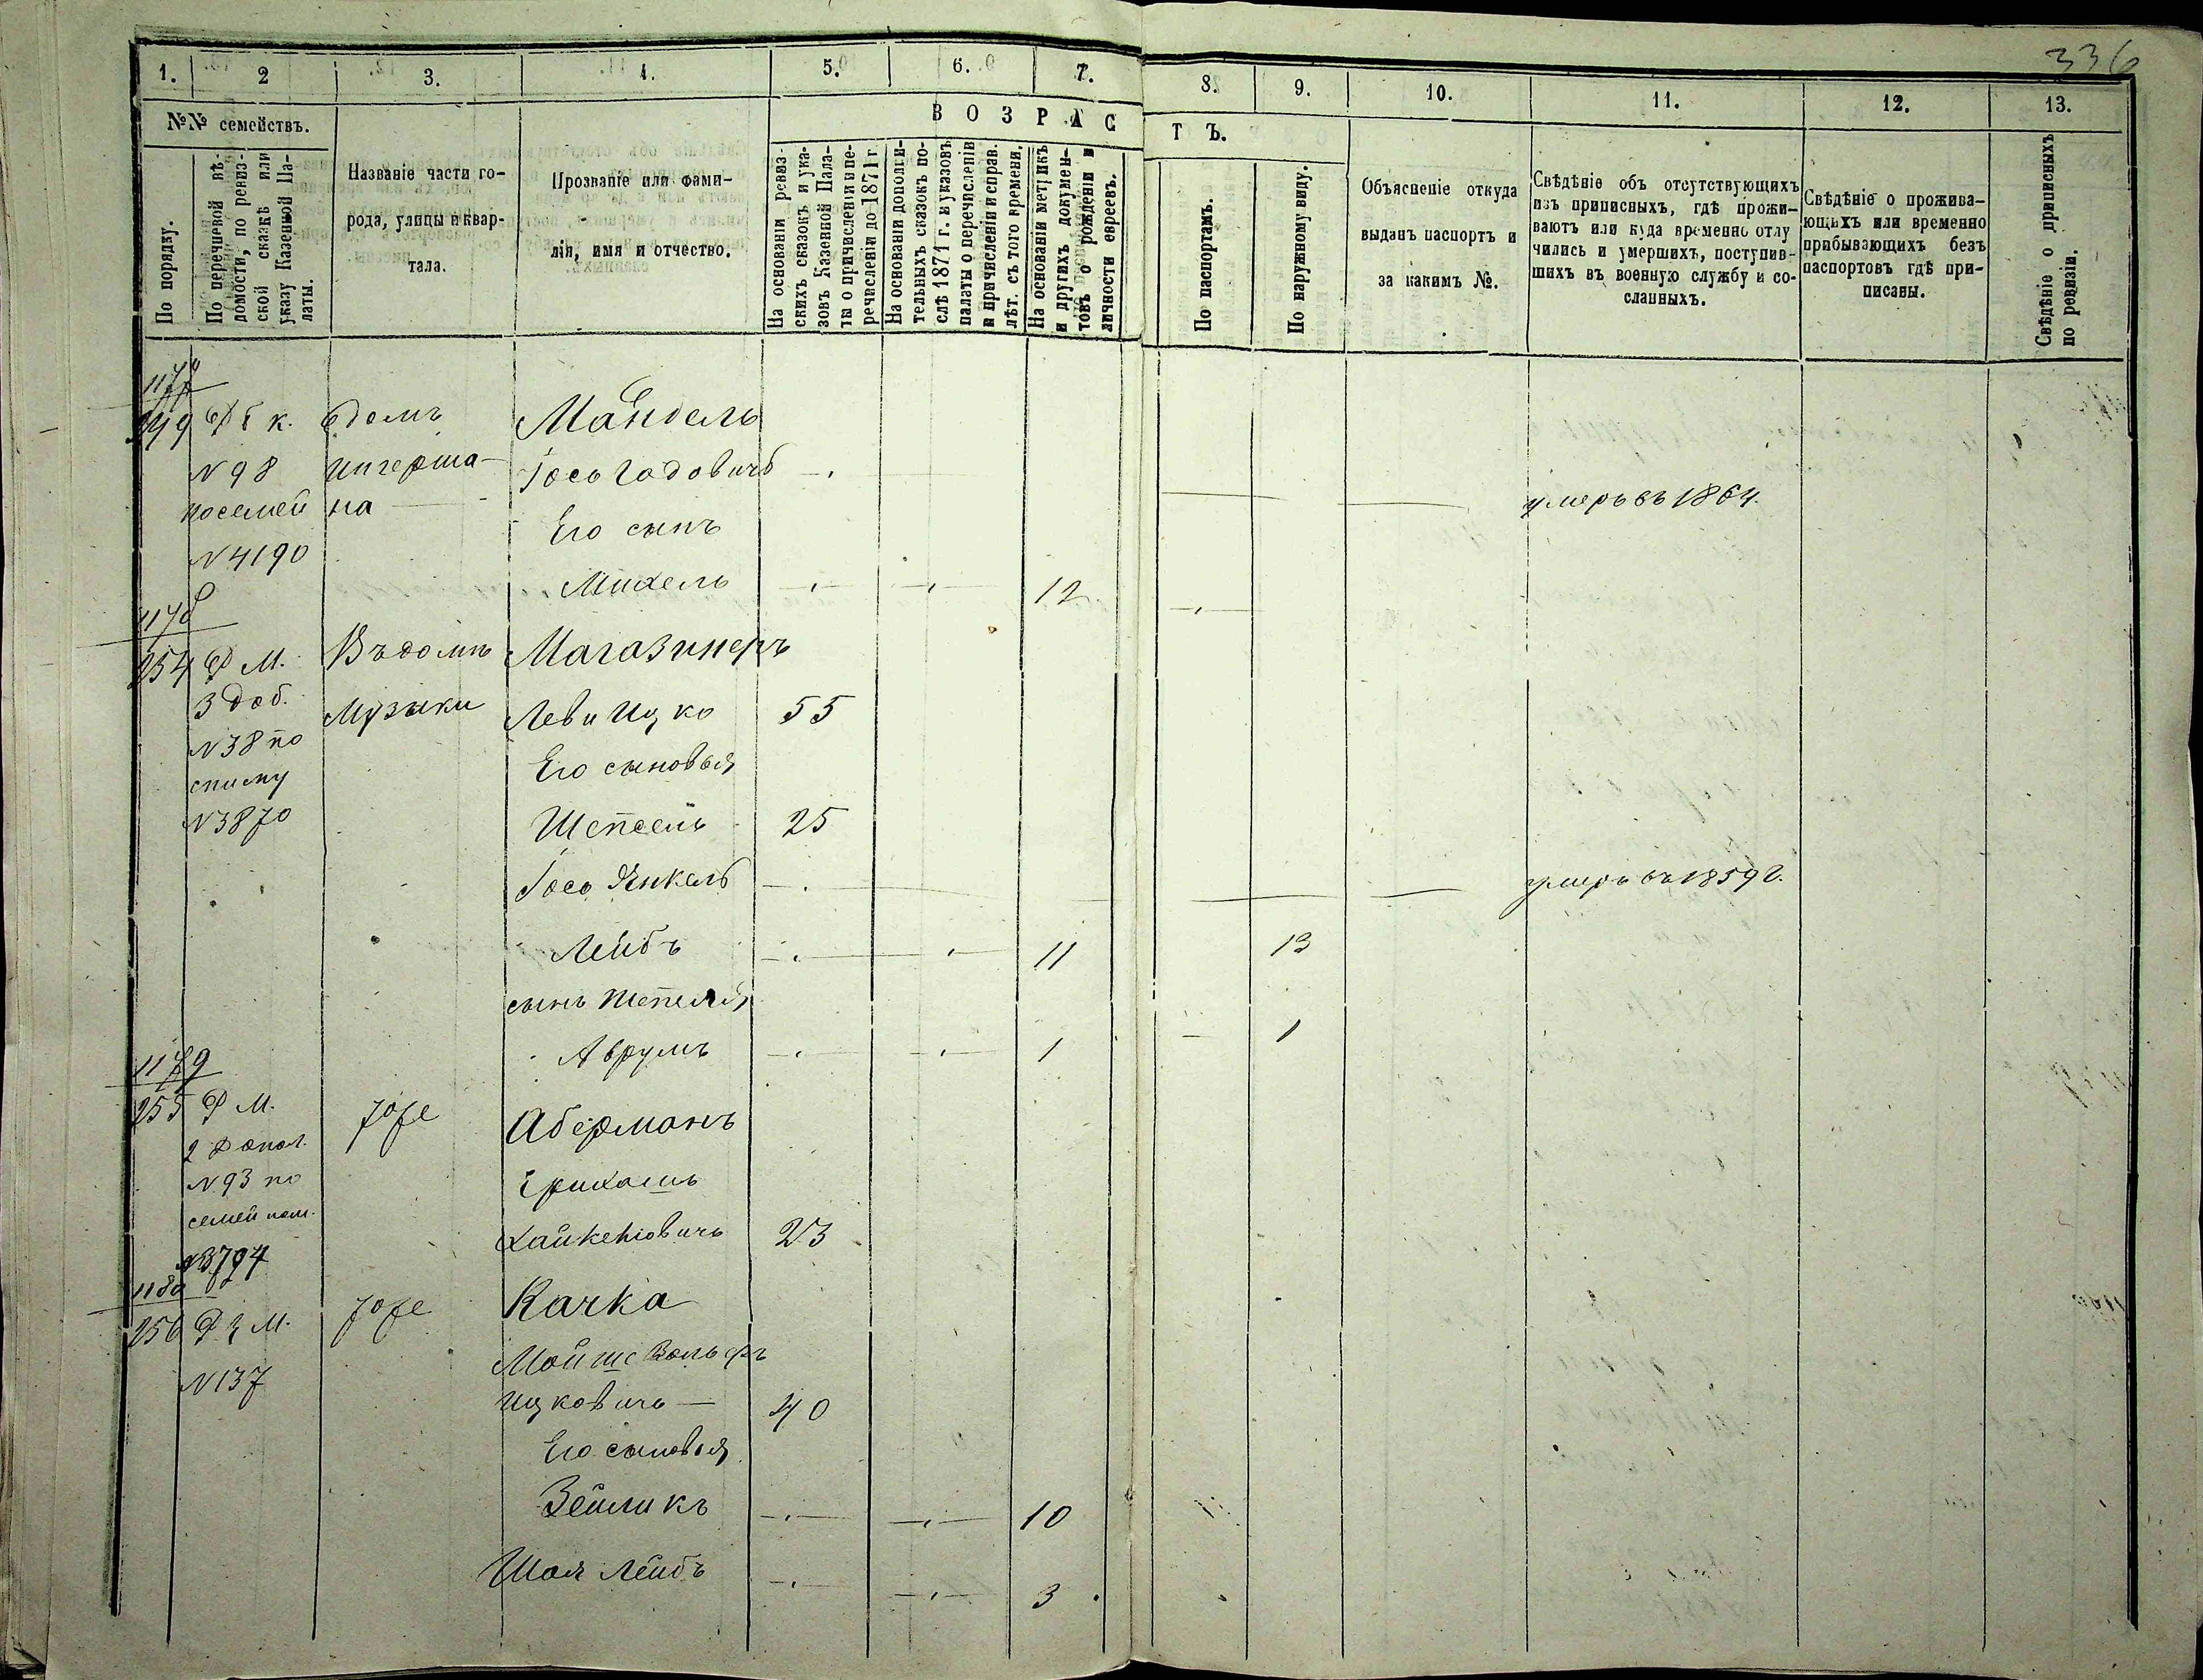 336
1. 2 3. 4. 5. 6. 7. 8. 9. 10. 11. 12. 13.
№№ семействъ.
ВОЗРАСТЪ.
По порядку.
По перечневой вѣ-
домости, по ревиз-
ской сказкѣ или
указу Казенной Па-
латы.
Названіе части го-
рода, улицы и квар-
тала.
Прозваніе или фами-
лія, имя и отчество.
На основаніи ревиз-
скихъ сказокъ и ука-
зовъ Казенной Пала-
ты о причисленіи и пе-
речисленіи до 1871 г.
На основаніи дополни-
тельныхъ сказокъ по-
слѣ 1871 г. и указовъ
палаты о перечисленіи
и причисленіи и справ.
лѣт. съ того времени.
На основаніи метрикъ
и другихъ докумен-
товъ о рожденіи и
личности евреевъ.
По паспортамъ.
По наружному виду.
Объясненіе откуда
выданъ паспортъ и
за какимъ №.
Свѣдѣніе объ отсутствующихъ
изъ приписныхъ, гдѣ прожи-
ваютъ или куда временно отлу
чились и умершихъ, поступив-
шихъ въ военную службу и со-
сланныхъ.
Свѣдѣніе о прожива-
ющихъ или временно
прибывающихъ безъ
паспортовъ гдѣ при-
писаны.
Свѣдѣніе о приписныхъ
по ревизіи.
1177
249 к. вдомъ Мандель
N 98 Ингерша- Іось Годовичъ умеръ въ 1864.
посемей на Его сынъ
N 4190
Михель 12
1178
254 Ф М. Въ домъ Магазинеръ
3 доб. Музыки Леви Ицко 55
N 38 по
Его сыновья
списку
N 3870 Шепсель 25
Іось Янкель умеръ въ 1859 г.
Лейбъ 11 13
сынъ Шепселя
Аврумъ 1 1
1179
255 Ф М. тоже Аберманъ
2 допол.
N 93 по
семей 23
N 3794
1180
256 М. тоже Качка
Мойше Вольфъ
N 137
Ицковичъ 40
Его сыновья
Зейликъ 10
Шая Лейбъ 3